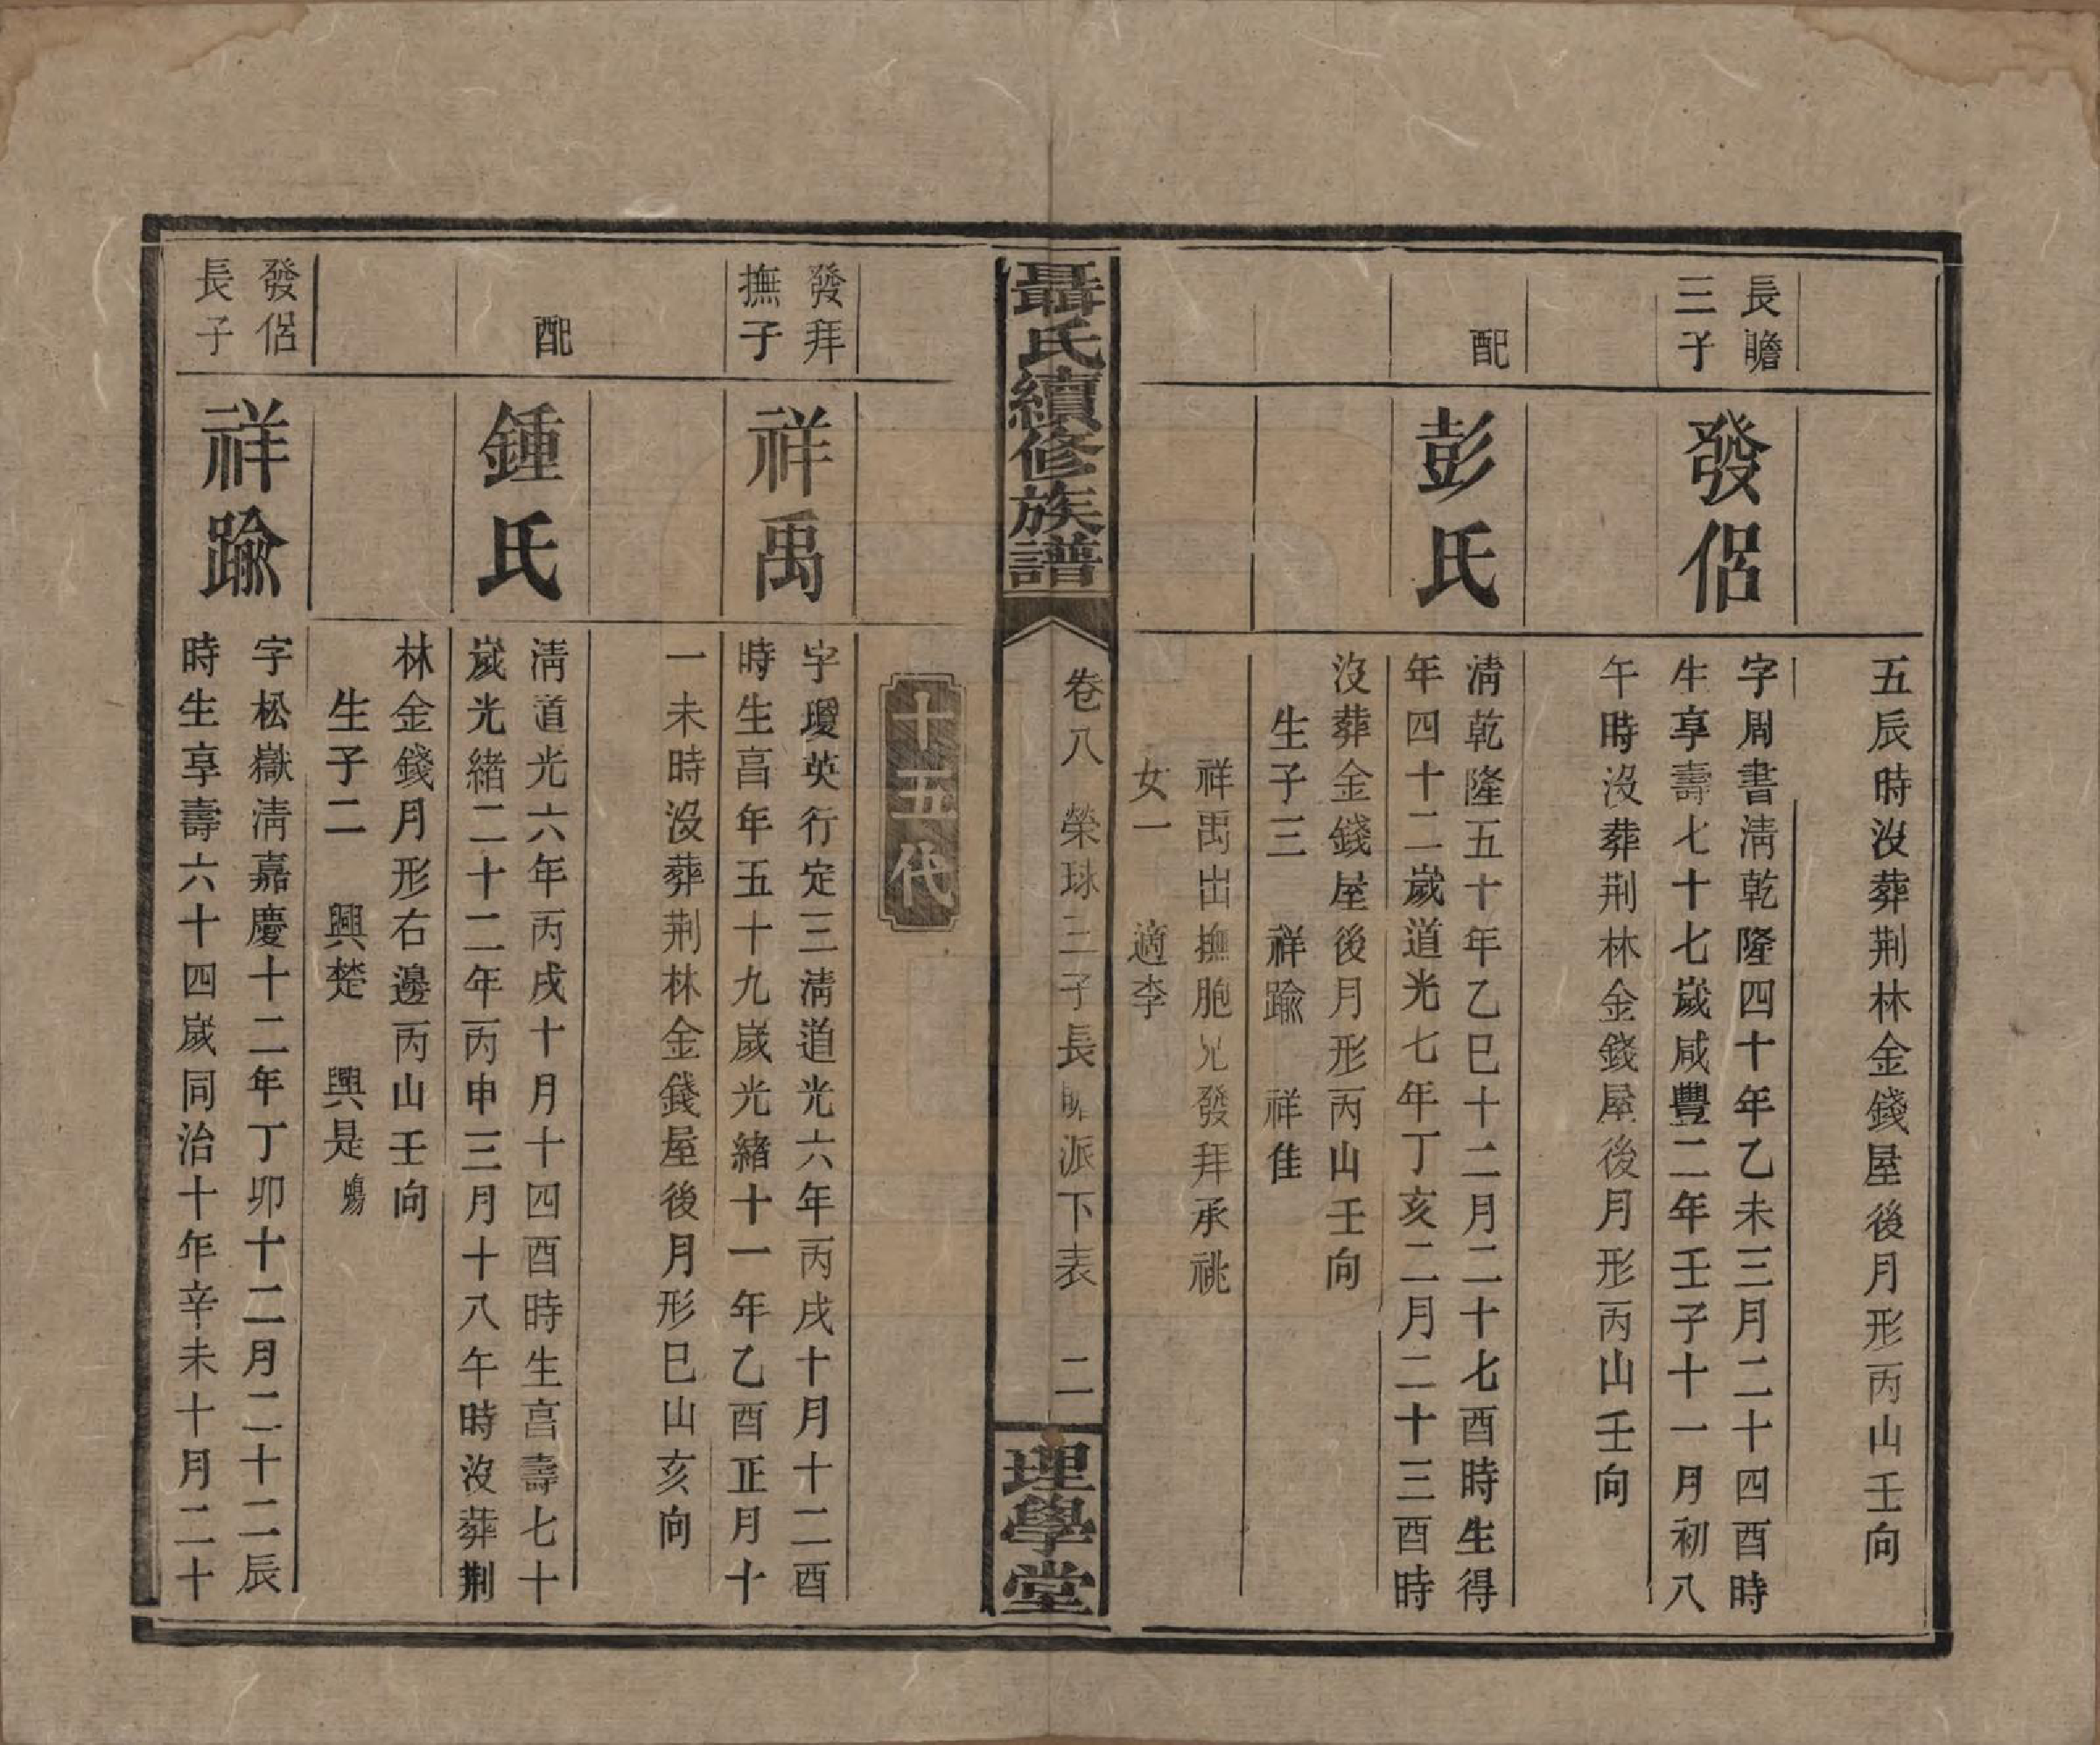 五辰時沒葬荆林金錢屋後月形丙山壬向
長瞻
三子
發侶
字周書淸乾隆四十年乙未三月二十四酉時
生享壽七十七嵗咸豐二年壬子十一月初八
午時沒葬荆林金錢屋後月形丙山壬向
配
彭氏
淸乾隆五十年乙巳十二月二十七酉時生得
年四十二嵗道光七年丁亥二月二十三酉時
沒葬金錢屋後月形丙山壬向
生子三 祥踰 祥佳
祥禹出撫胞兄發拜承祧
女一 適李
聶氏續修族譜
卷八 榮球三子長瞻派下表 二
理學堂
十五代
發拜
撫子
祥禹
字瓊英行定三淸道光六年丙戌十月十二酉
時生亯年五十九嵗光緒十一年乙酉正月十
一未時沒葬荆林金錢屋後月形巳山亥向
配
鍾氏
淸道光六年丙戌十月十四酉時生亯壽七十
嵗光緒二十二年丙申三月十八午時沒葬荆
林金錢月形右邊丙山壬向
生子二 興楚 興是殤
發侶
長子
祥踰
字松嶽淸嘉慶十二年丁卯十二月二十二辰
時生享壽六十四嵗同治十年辛未十月二十